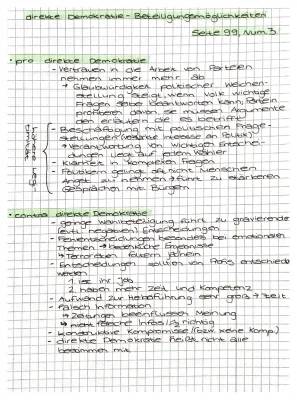 direkte Demokratie - Beteiligungsmöglichkeiten
Seite 99, Num. 3
• pro direkte Demokratie
- Vertrauen in die Arbeit von Parteien
nehmen immer mehr ab
→ Glaubwürdigkeit politischer Weichen-
stellung steigt, wenn Volk wichtige
Fragen selbe beantworten kann, Partein
profitieren davon sie müssen Argumente
den erläutern die es betrifft
- Beschäftigung mit politischen Frage-
stellungen (verstärkt Interesse an Politik)
→ Verantwortung von wichtigen Entschei-
dungen liegt auf jedem Wähler
- Klarheit in komplexen Fragen
- Politikern gelingt oft nicht Menschen
Angst zu nehmen → führt zu stärkeren
Gesprächen mit Bürgern
• contra direkte Demokratie
- geringe Wahlbeteiligung führt zu gravierende
(evtl. negativen) Entscheidungen
- Fehlentscheidungen besonders bei emotionalen
Themen →
→ Terroristen foltern
- Entscheidungen sollten von Profis entschieden
werden
1. ist ihr Job
2. haben mehr Zeit und Kompetenz
- Aufwand zur Herbeiführung sehr groß + Zeit
- falsch Information
→ Zeitungen beeinflussen Meinung
→ nicht falsche Infos richtig
- konstruktive Kompromisse (bzw. keine Komp.)
- direkte Demokratie heißt nicht alle
bestimmen mit